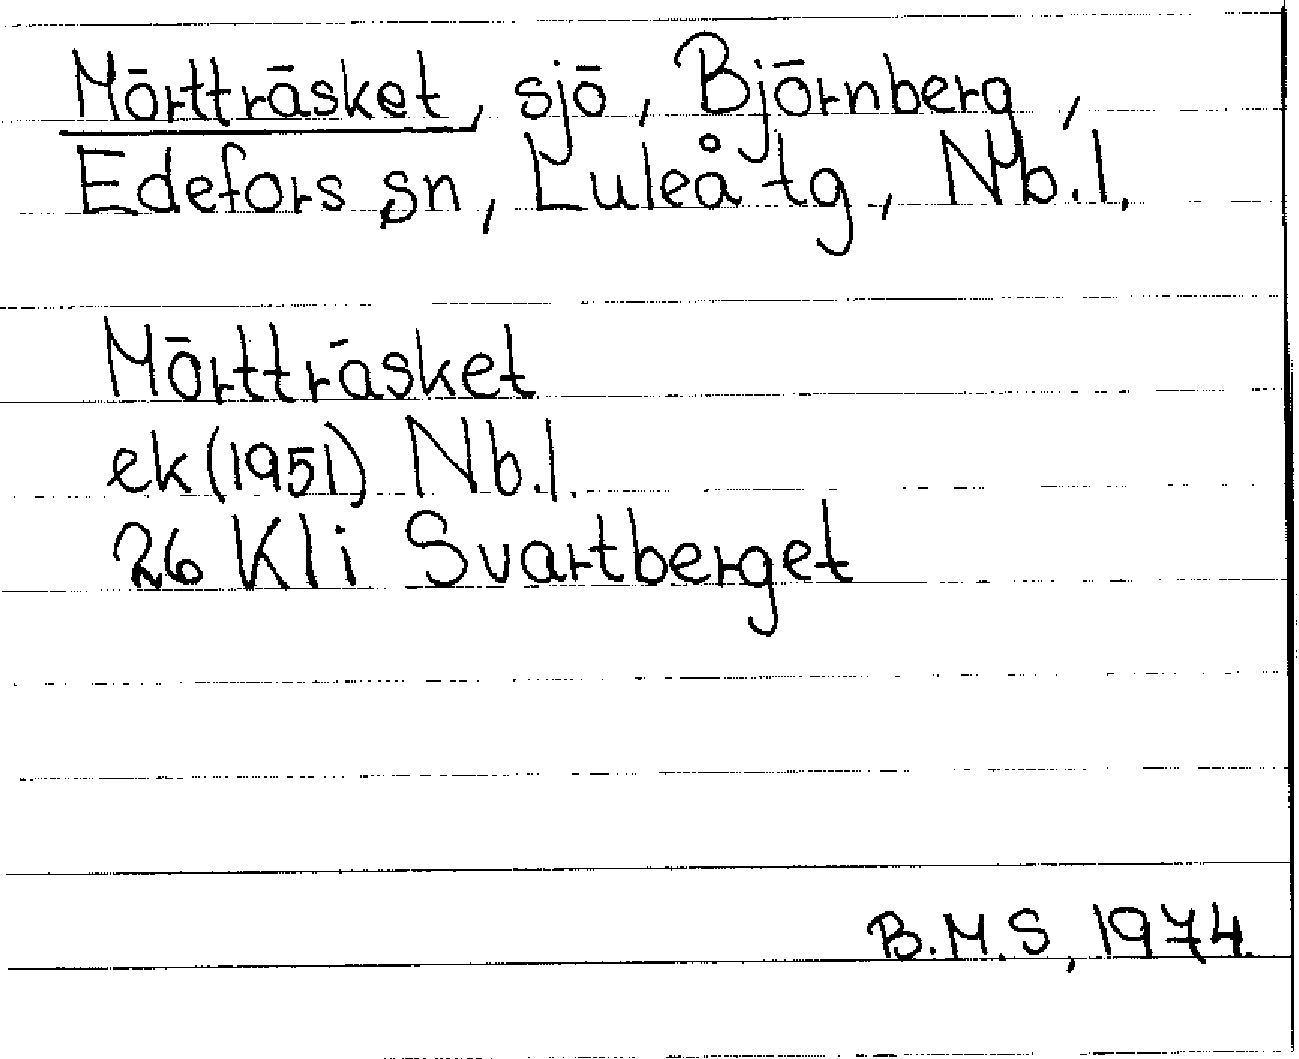 Mörtträsket, sjö, Björnberg,
Edefors sn, Luleå tg, Nb.l.
Mörtträsket
ek(1951) Nb.l.
26 Kli Svartberget
B.M.S, 1974.